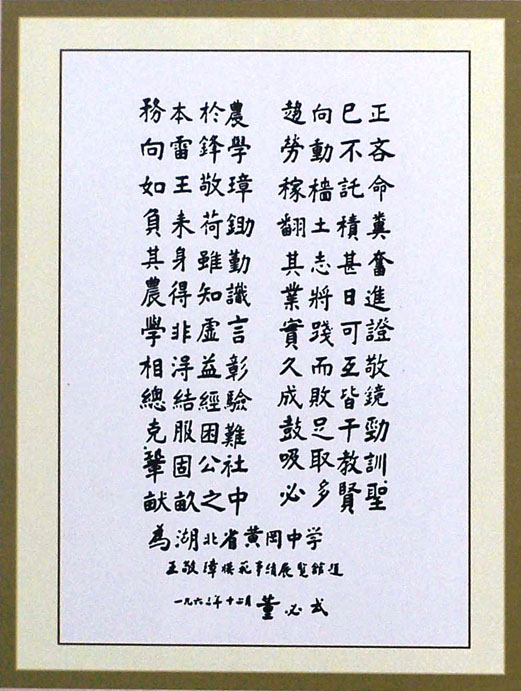 正吝命糞奮進證敬鏡勁訓聖
巳不託積甚日可互皆干教賢
向動檣土志將踐而敗足取多
趨勞稼翻其業實久成鼓吸必
農學璋鋤勤識言彰驗難社中
於鋒敬荷雖知虛益經困公之
本雷王耒身得非淂結服固畝
務向如負其農學相總克鞏献
為湖北省黄岡中学
王敬璋模范事绩展覧館題
一九六三年十二月 董必武